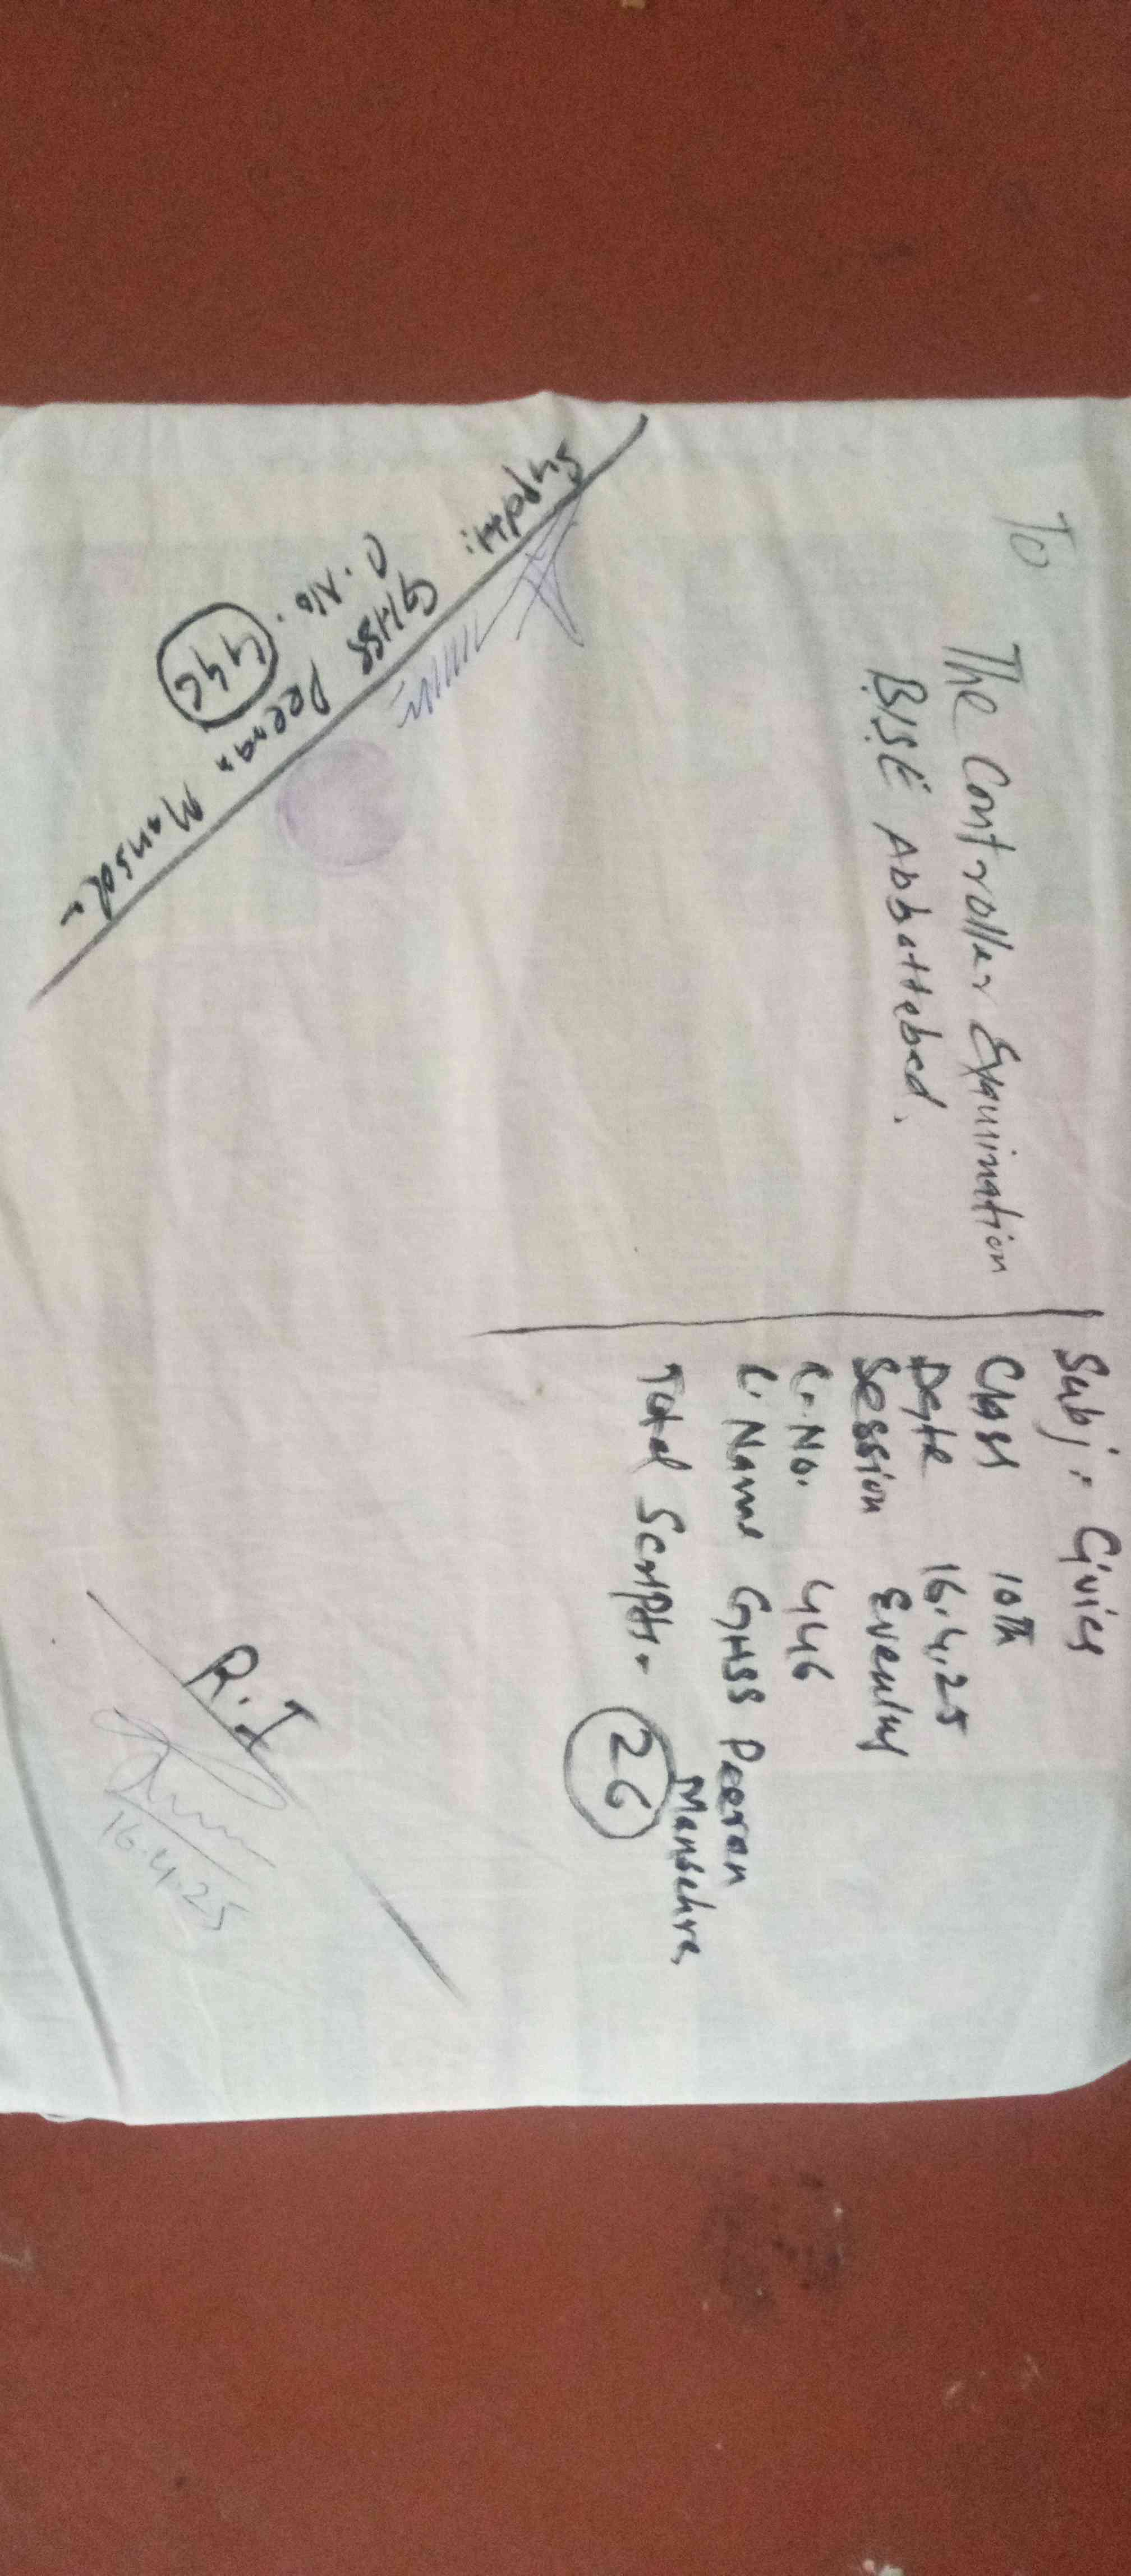 To
The Controller Examination
BISE Abbottabad.
Subj:- Civics
Class 10th
Date 16.4.25
Session Evening
C.No. 446
C.Name GHSS Peeran
Mansehra
Total Scripts- 26
Supdtt:
GHSS Peeran Mansehra
C.No. 446
R.I
16.4.25